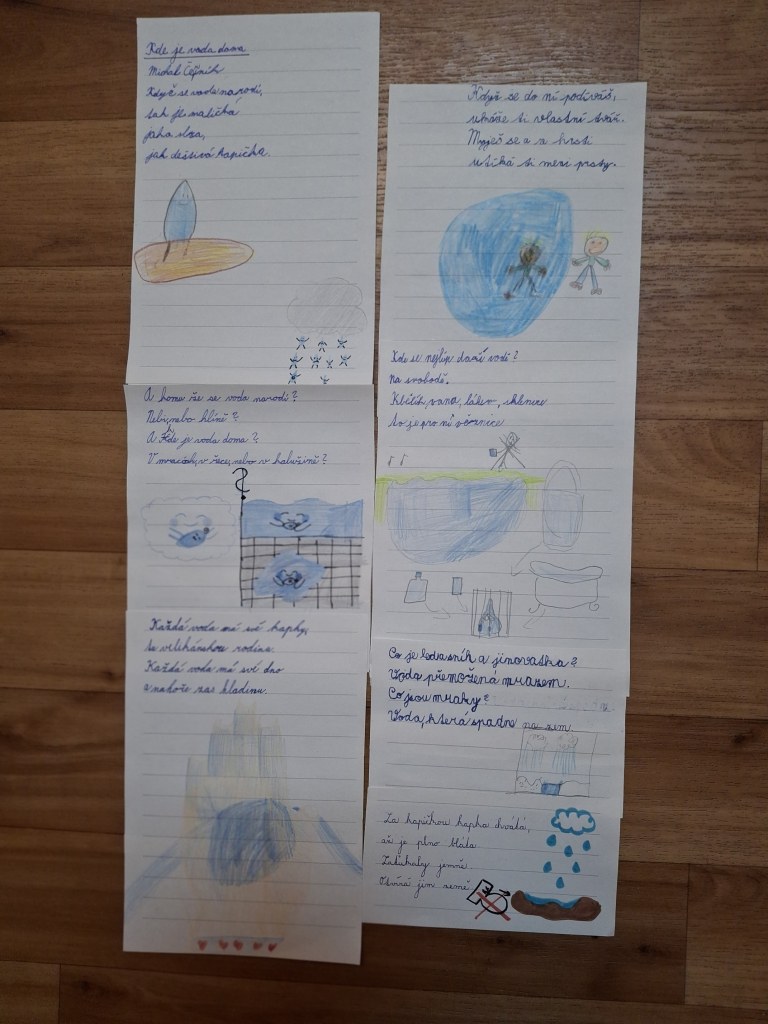 Kde je voda doma
Michal Čeřník
Když se voda narodí,
tak je maličká
jako slza,
jak dešťová kapička.
A komu že se voda narodí?
Nebi, nebo hlíně?
A kde je voda doma?
V mracích, v řece, nebo v kalužině?
Každá voda má své kapky,
to velikánskou rodinu.
Každá voda má své dno
a nahoře zas hladinu.
Když se do ní podíváš,
ukáže ti vlastní tvář.
Myješ se a z hrsti
utíká ti mezi prsty.
Kde se nejlíp daří vodě?
Na svobodě.
Kbelík, vana, láhev, sklenice
to je pro ni věznice
Co je led a sníh a jinovatka?
Voda přemožená mrazem.
Co jsou mraky?
Voda, která spadne na zem.
Za kapičkou kapka chvátá,
až je plno bláta
Zaťukaly jemně
Otvírá jim země